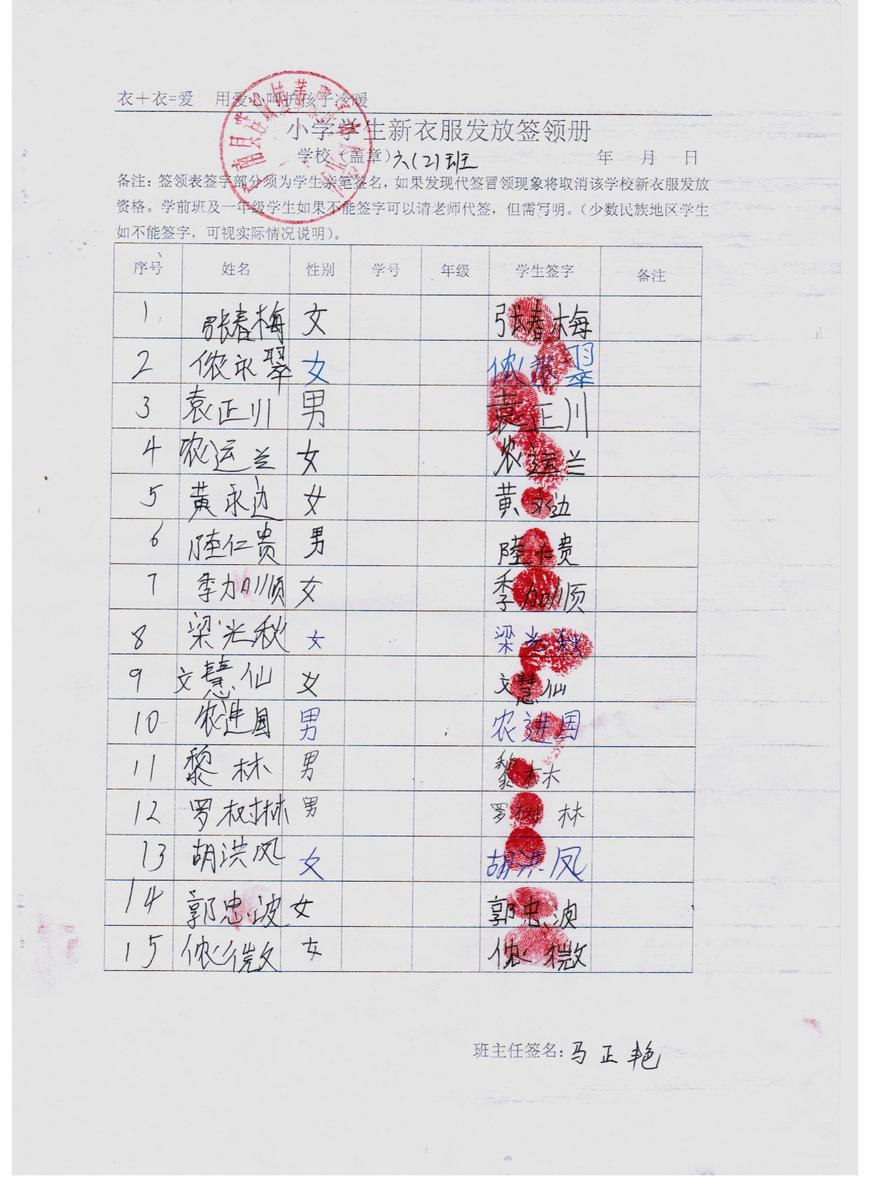 衣+衣=爱 用爱心呵护孩子冷暖
小学学生新衣服发放签领册
学校（盖章）六(2)班 年 月 日
备注：签领表签字部分须为学生亲笔签名，如果发现代签冒领现象将取消该学校新衣服发放
资格。学前班及一年级学生如果不能签字可以请老师代签，但需写明。（少数民族地区学生
如不能签字，可视实际情况说明）。
序号 姓名 性别 学号 年级 学生签字 备注
1 张春梅 女 张春梅
2 侬永翠 女 侬永翠
3 袁正川 男 袁正川
4 农运兰 女 农运兰
5 黄永边 女 黄永边
6 陆仁贵 男 陆仁贵
7 季加顺 女 季加顺
8 梁光秋 女 梁光秋
9 文慧仙 女 文慧仙
10 农进国 男 农进国
11 黎林 男 黎林
12 罗树林 男 罗树林
13 胡洪凤 女 胡洪凤
14 郭忠波 女 郭忠波
15 侬微 女 侬微
班主任签名：马正艳